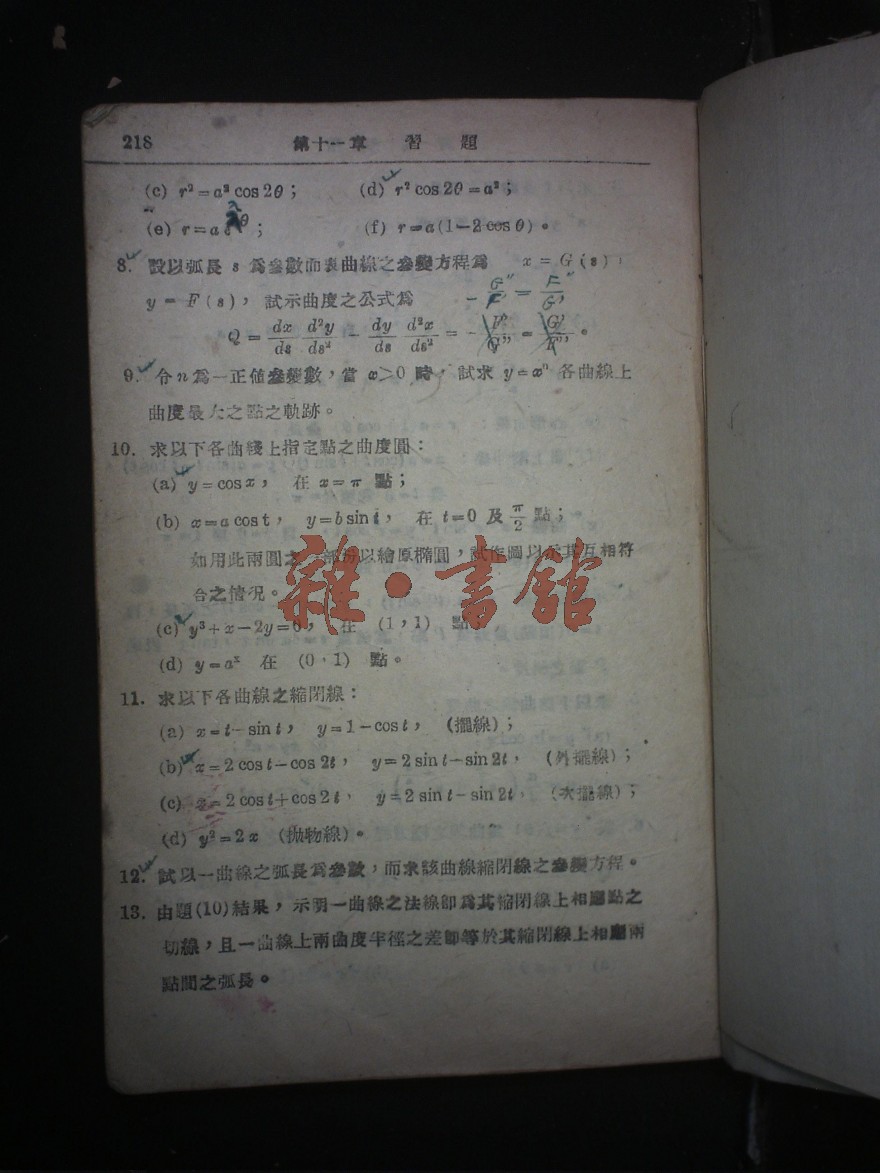 218 第十一章 習 題
(c) r²=a² cos 2θ; (d) r² cos 2θ=a²;
(e) r=a e^λθ; (f) r=a(1-2 cos θ)。
8. 設以弧長 s 爲參數而表曲線之參變方程爲 x = G(s),
y = F(s), 試示曲度之公式爲 - G''/F' = F''/G'
Q = dx/ds d²y/ds² - dy/ds d²x/ds² = - F'/G'' = G'/F''。
9. 令 n 爲一正値參變數,當 x>0 時,試求 y=xⁿ 各曲線上
曲度最大之點之軌跡。
10. 求以下各曲綫上指定點之曲度圓:
(a) y=cos x, 在 x=π 點;
(b) x=a cos t, y=b sin t, 在 t=0 及 π/2 點;
如用此兩圓之一部份以繪原橢圓,試作圖以示其互相符
合之情况。
雜·書館
(c) y³+x-2y=0, 在 (1,1) 點
(d) y=aˣ 在 (0,1) 點。
11. 求以下各曲線之縮閉線:
(a) x=t-sin t, y=1-cos t, (擺線);
(b) x=2 cos t-cos 2t, y=2 sin t-sin 2t, (外擺線);
(c) x=2 cos t+cos 2t, y=2 sin t-sin 2t, (次擺線);
(d) y²=2x (抛物線)。
12. 試以一曲線之弧長爲參數,而求該曲線縮閉線之參變方程。
13. 由題(10)結果,示明一曲線之法線卽爲其縮閉線上相應點之
切線,且一曲線上兩曲度半徑之差卽等於其縮閉線上相應兩
點間之弧長。